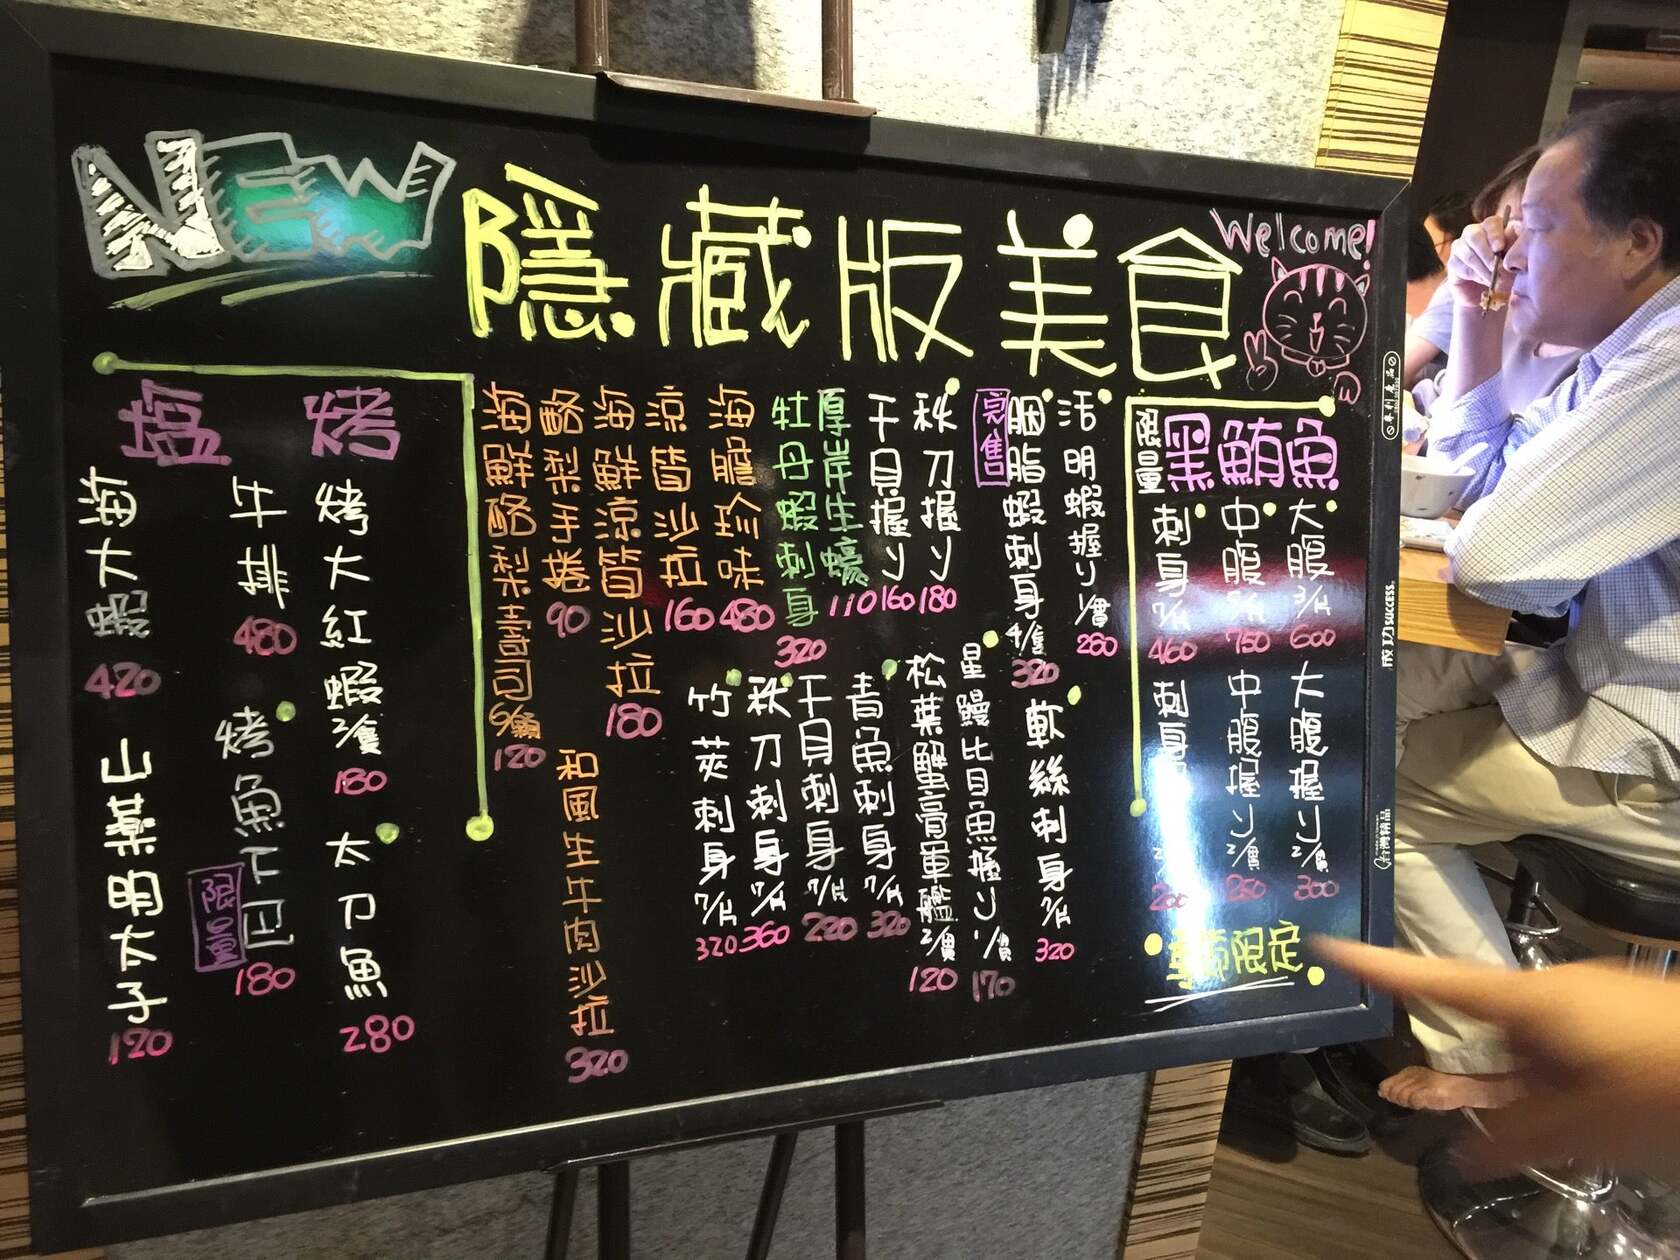 NEW
隱藏版美食
Welcome!
限量
黑鮪魚
大腹3/片
600
中腹5/片
750
刺身7/片
460
大腹握り2/貫
300
中腹握り2/貫
250
刺身
200
限定
活明蝦握り1/貫
280
完售
胭脂蝦刺身4/隻
320
秋刀握り
180
干貝握り
160
厚岸生蠔
110
牡丹蝦刺身
320
海膽珍味
480
涼筍沙拉
160
海鮮涼筍沙拉
180
酪梨手捲
90
海鮮酪梨壽司6/顆
120
軟絲刺身7/片
320
星鰻比目魚握り1/貫
170
松葉蟹膏軍艦2/貫
120
青魚刺身7/片
320
干貝刺身7/片
220
秋刀刺身7/片
360
竹莢刺身7/片
320
和風生牛肉沙拉
320
塩烤
烤大紅蝦2/隻
180
牛排
480
海大蝦
420
太刀魚
280
烤魚下巴
限量
180
山藥明太子
120
專利產品
成功 SUCCESS
台灣精品